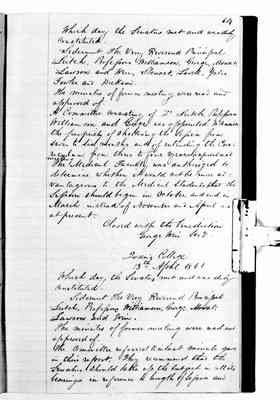 64
Which day the Senatus met and was duly
constituted.
Sederunt The Very Reverend Principal
Leitch, Professors Williamson, George, Mowat
Lawson and Weir, Stewart, Litch,
Fowler and Dickson.
The minutes of former meeting were read and
approved of.
A Committee consisting of Dr Leitch, Professors
Williamson and George was appointed to consider
the propriety of shortening the Session from
seven to six months and of extending the
from three to four years
The Medical Faculty was also urged to
determine whether it would not be more ad-
vantageous to the Medical Students that the
Session should begin in October and end in
March instead of November and April as
at present.
Closed with the benediction
George Weir Secy
Queen's College
13th April 1861
Which day, the Senatus met and was duly
constituted.
Sederunt The Very Reverend Principal
Leitch, Professors Williamson, George, Mowat,
Lawson and Weir.
The minutes of former meeting were read and
approved of.
The Committee
in their report. They recommend that the
Senatus should take up the subject in all its
bearings in reference to length of Session and